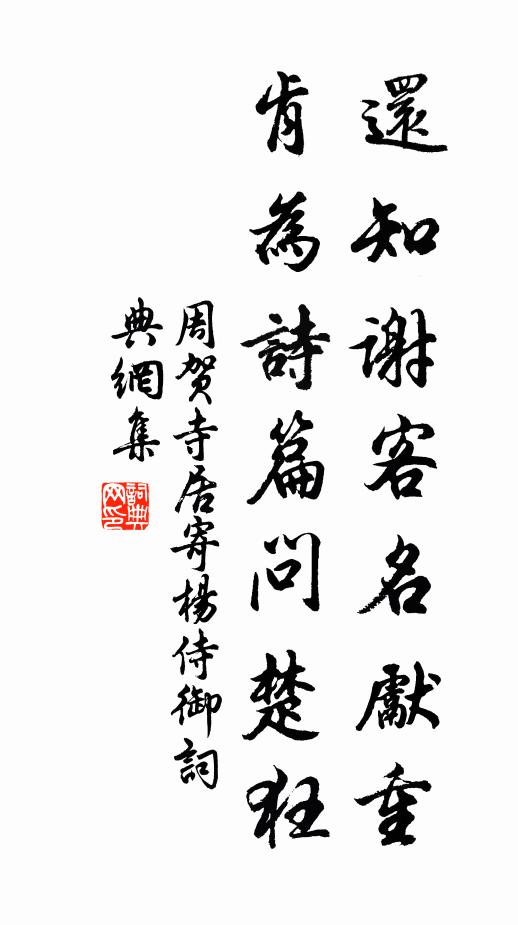 還知謝客名獻重
肯為詩篇問楚狂
周贺寺居寄楊侍御詞
典網集
詞典
网印